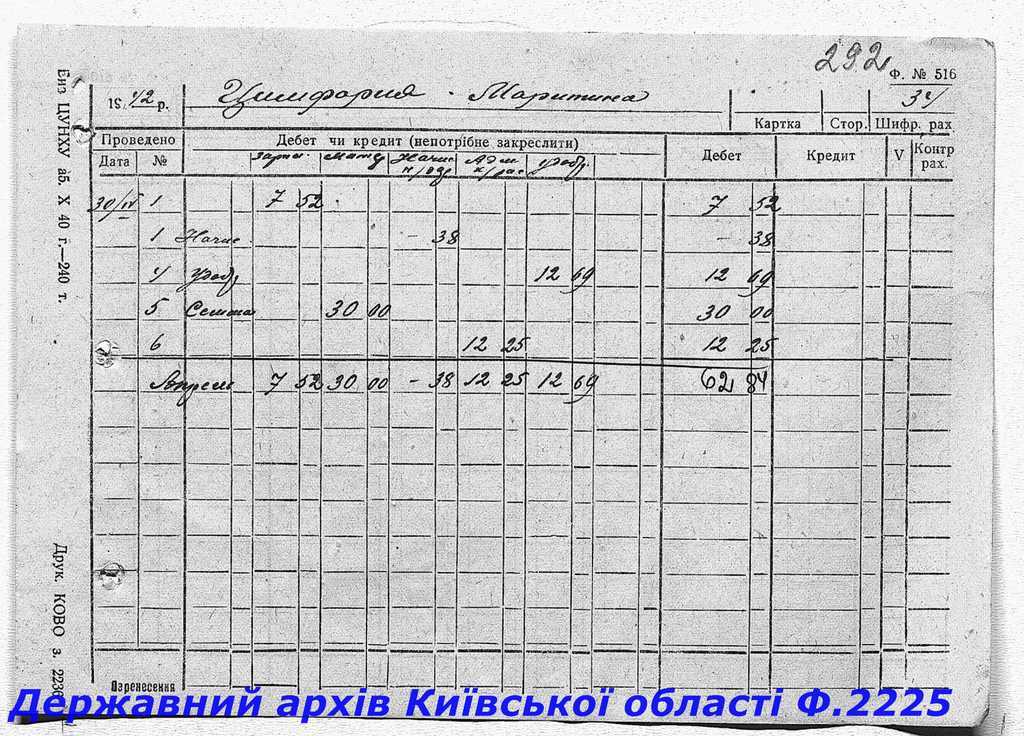 292
Ф. № 516
1942 р. Цимфория Маритима 34
Картка Стор. Шифр. рах
Проведено Дебет чи кредит (непотрібне закреслити) Дебет Кредит V Контр рах.
Дата №
30/IV 1 7 52 7 52
1 Начис. - 38 - 38
4 удобр 12 69 12 69
5 Семена 30 00 30 00
6 12 25 12 25
Апрель 7 52 30 00 - 38 12 25 12 69 62 84
Перенесення
Биз ЦУНХУ аб. X 40 г.—240 т.
Друк. КОВО з. 2236
Державний архів Київської області Ф.2225